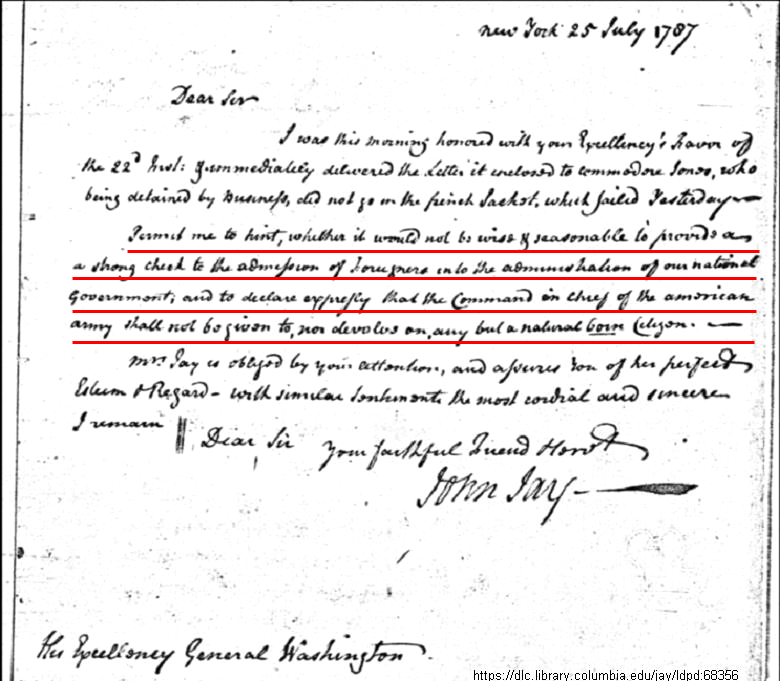 new York 25 July 1787
Dear Sir
I was this morning honored with your Excellency's Favor of
the 22d Inst: & immediately delivered the Letter it enclosed to commodore Jones, who
being detained by Business, did not go in the french Packet, which sailed Yesterday —
Permit me to hint, whether it would not be wise & seasonable to provide a
a strong check to the admission of Foreigners into the administration of our national
Government; and to declare expressly that the Command in chief of the american
army shall not be given to, nor devolve on, any but a natural born Citizen. —
Mrs. Jay is obliged by your attention, and assures You of her perfect
Esteem & Regard — with similar Sentiments the most cordial and sincere
I remain Dear Sir Your faithful Friend & Servt
John Jay —
His Excellency General Washington.
https://dlc.library.columbia.edu/jay/ldpd:68356